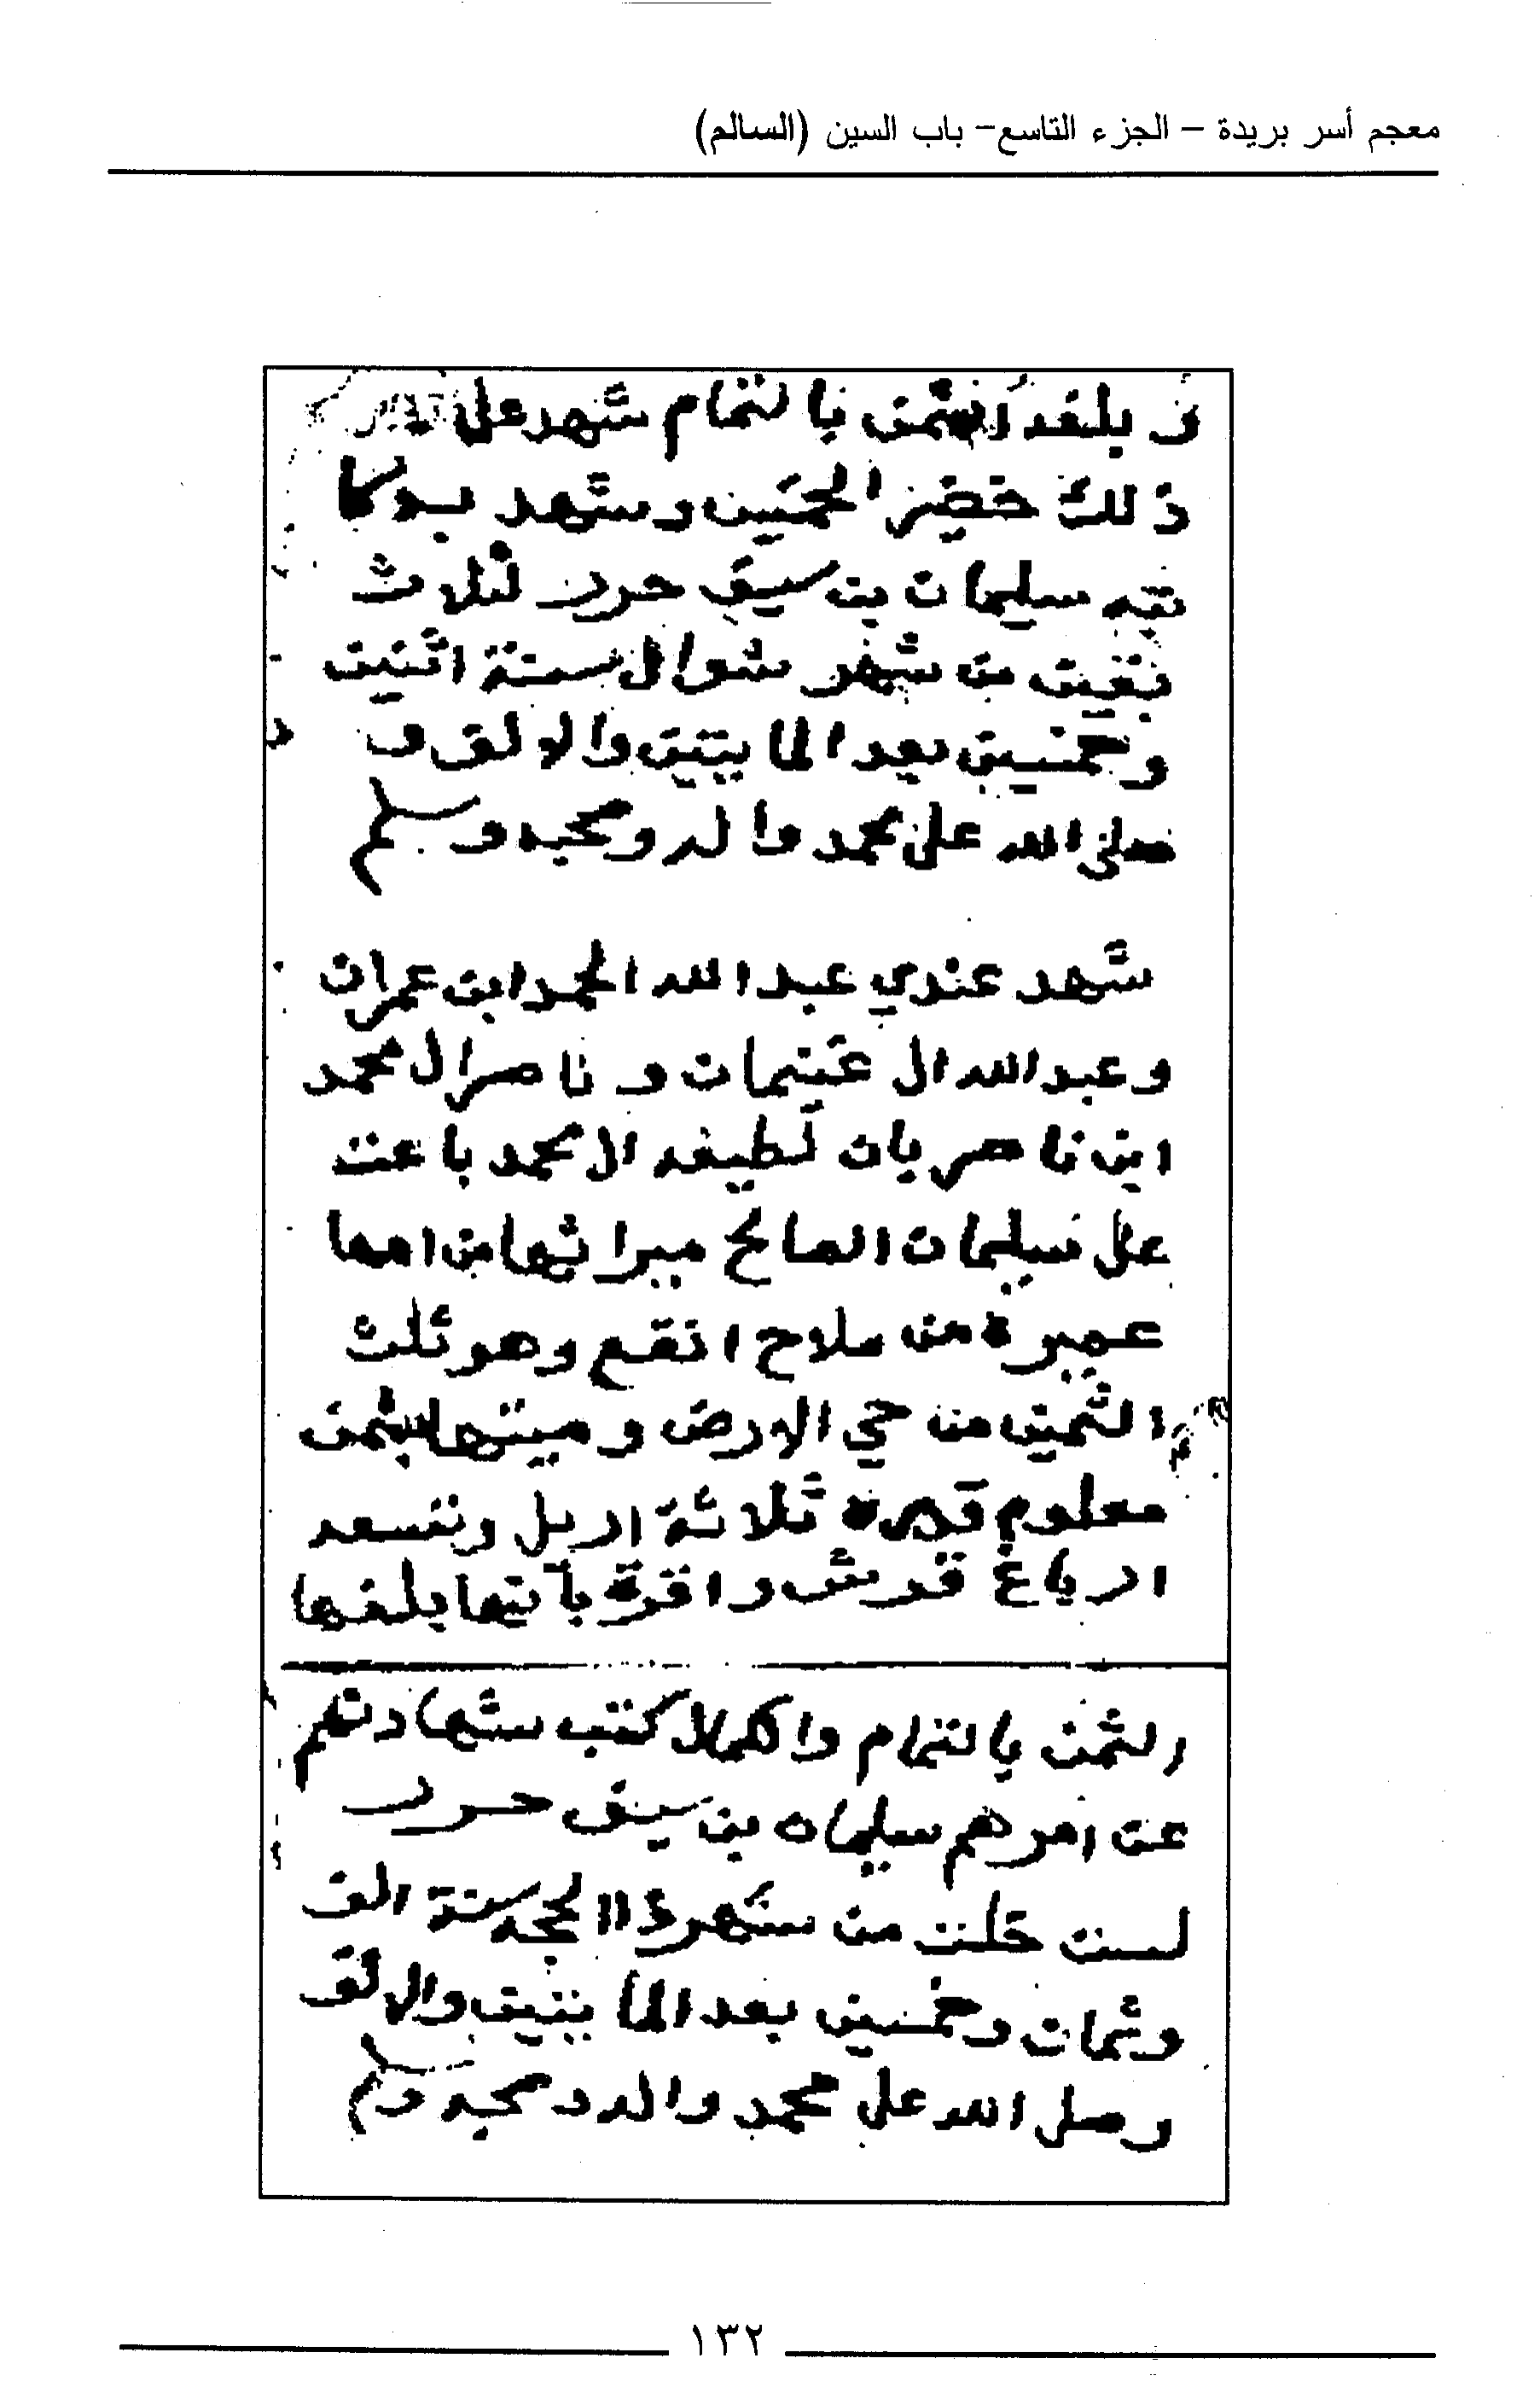 معجم أسر بريدة – الجزء التاسع– باب السين (السالم)
بلغه الثمن بالتمام شهد على
ذلك خضير الحميّن وشهد به وكا
تبه سليمان بن سيف حرر لثلاث
بقين من شهر شوال سنة اثنين
وخمسين بعد المايتين والالف و
صلى الله على محمد واله وصحبه وسلم
شهد عندي عبدالله الحمد ابن عمران
وعبدالله ال غنيمان و ناصر ال محمد
ابن ناصر بان لطيفه ال محمد باعت
على سليمان الصالح ميراثها من امها
عميره من ملاح انقع وهو ثلث
الثمين من حي الارض وميتها بثمن
معلوم قدره ثلاثة اريل وتسعه
ارباع قرش واقرة بانها بلغها
الثمن بالتمام والكمال كتب شهادتهم
عن امرهم سليمان بن سيف حرر
لست خلت من شهر ذا الحجه سنة الف
وثمان وخمسين بعد المايتين والالف
وصلى الله على محمد واله وصحبه وسلم
١٣٢